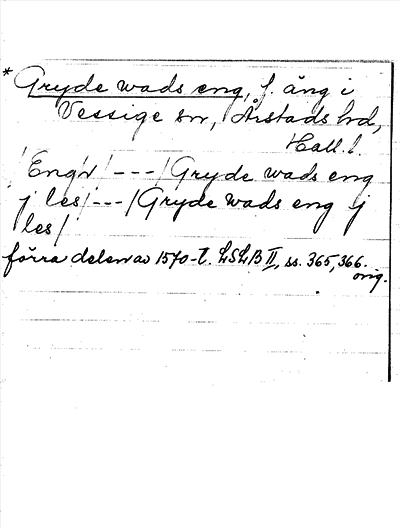 * Gryde wads eng, f. äng i
Vessige sn, Årstads hd,
Hall. l.
/Engr/ --- / Gryde wads eng
j les/ --- / Gryde wads eng j
les/
förra delen av 1570-t. LSLB II, ss. 365, 366.
orig.